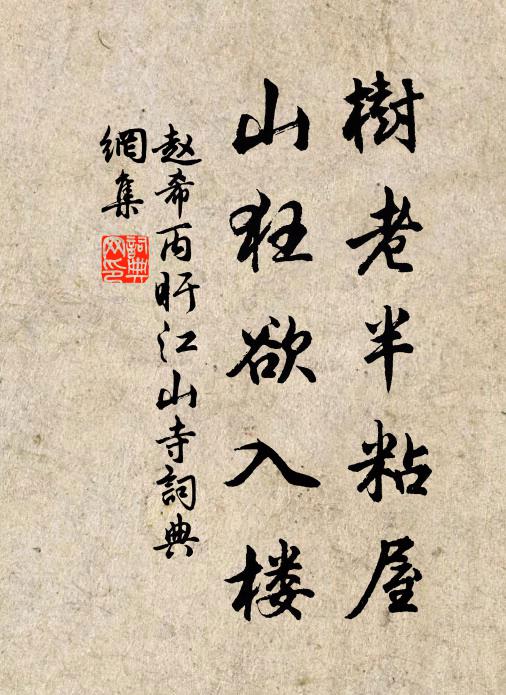 樹老半粘屋
山狂欲入楼
赵希丙盱江山寺詞典
網集
詞典網印